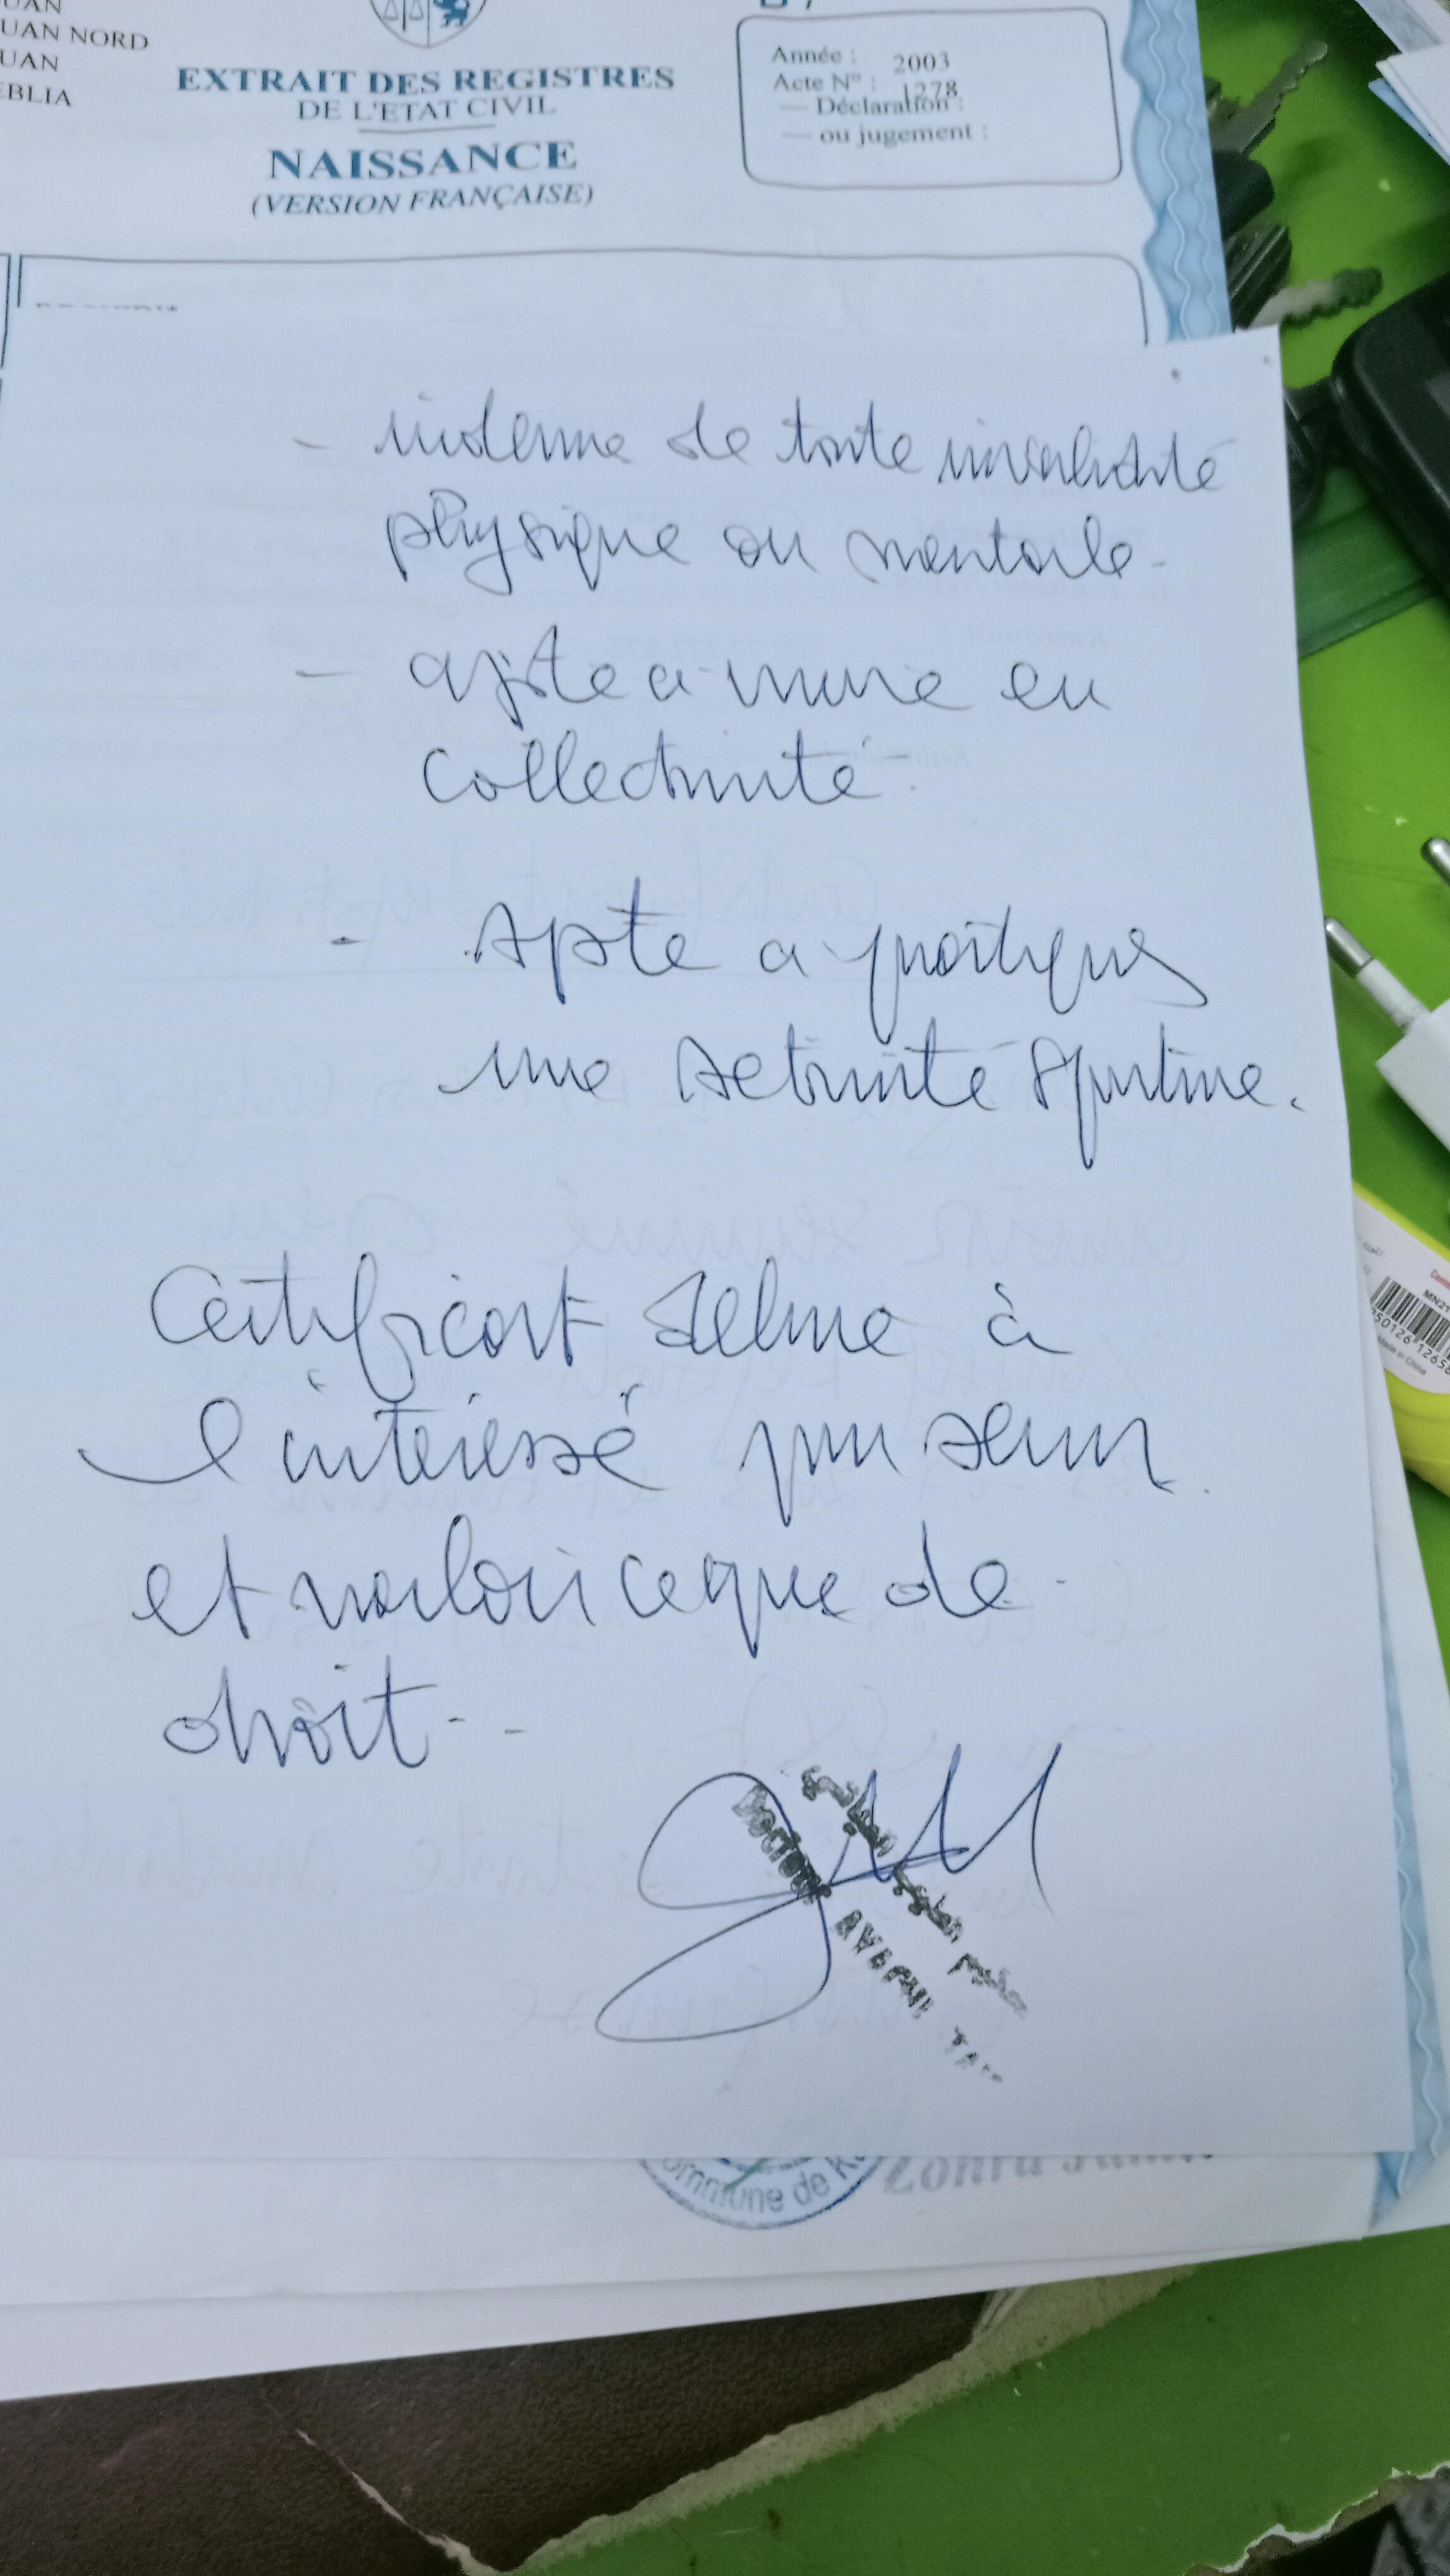 UAN NORD
UAN
EBLIA
EXTRAIT DES REGISTRES
DE L'ETAT CIVIL
NAISSANCE
(VERSION FRANÇAISE)
Année : 2003
Acte N° : 1278
— Déclaration :
— ou jugement :
- indemne de toute invalidité
physique ou mentale.
- apte à vivre en
collectivité.
- Apte à pratiquer
une activité sportive.
Certificat délivré à
l'intéressé pour servir
et valoir ce que de
droit..
Docteur
ommune de K
Zohra
MN21
Made in China